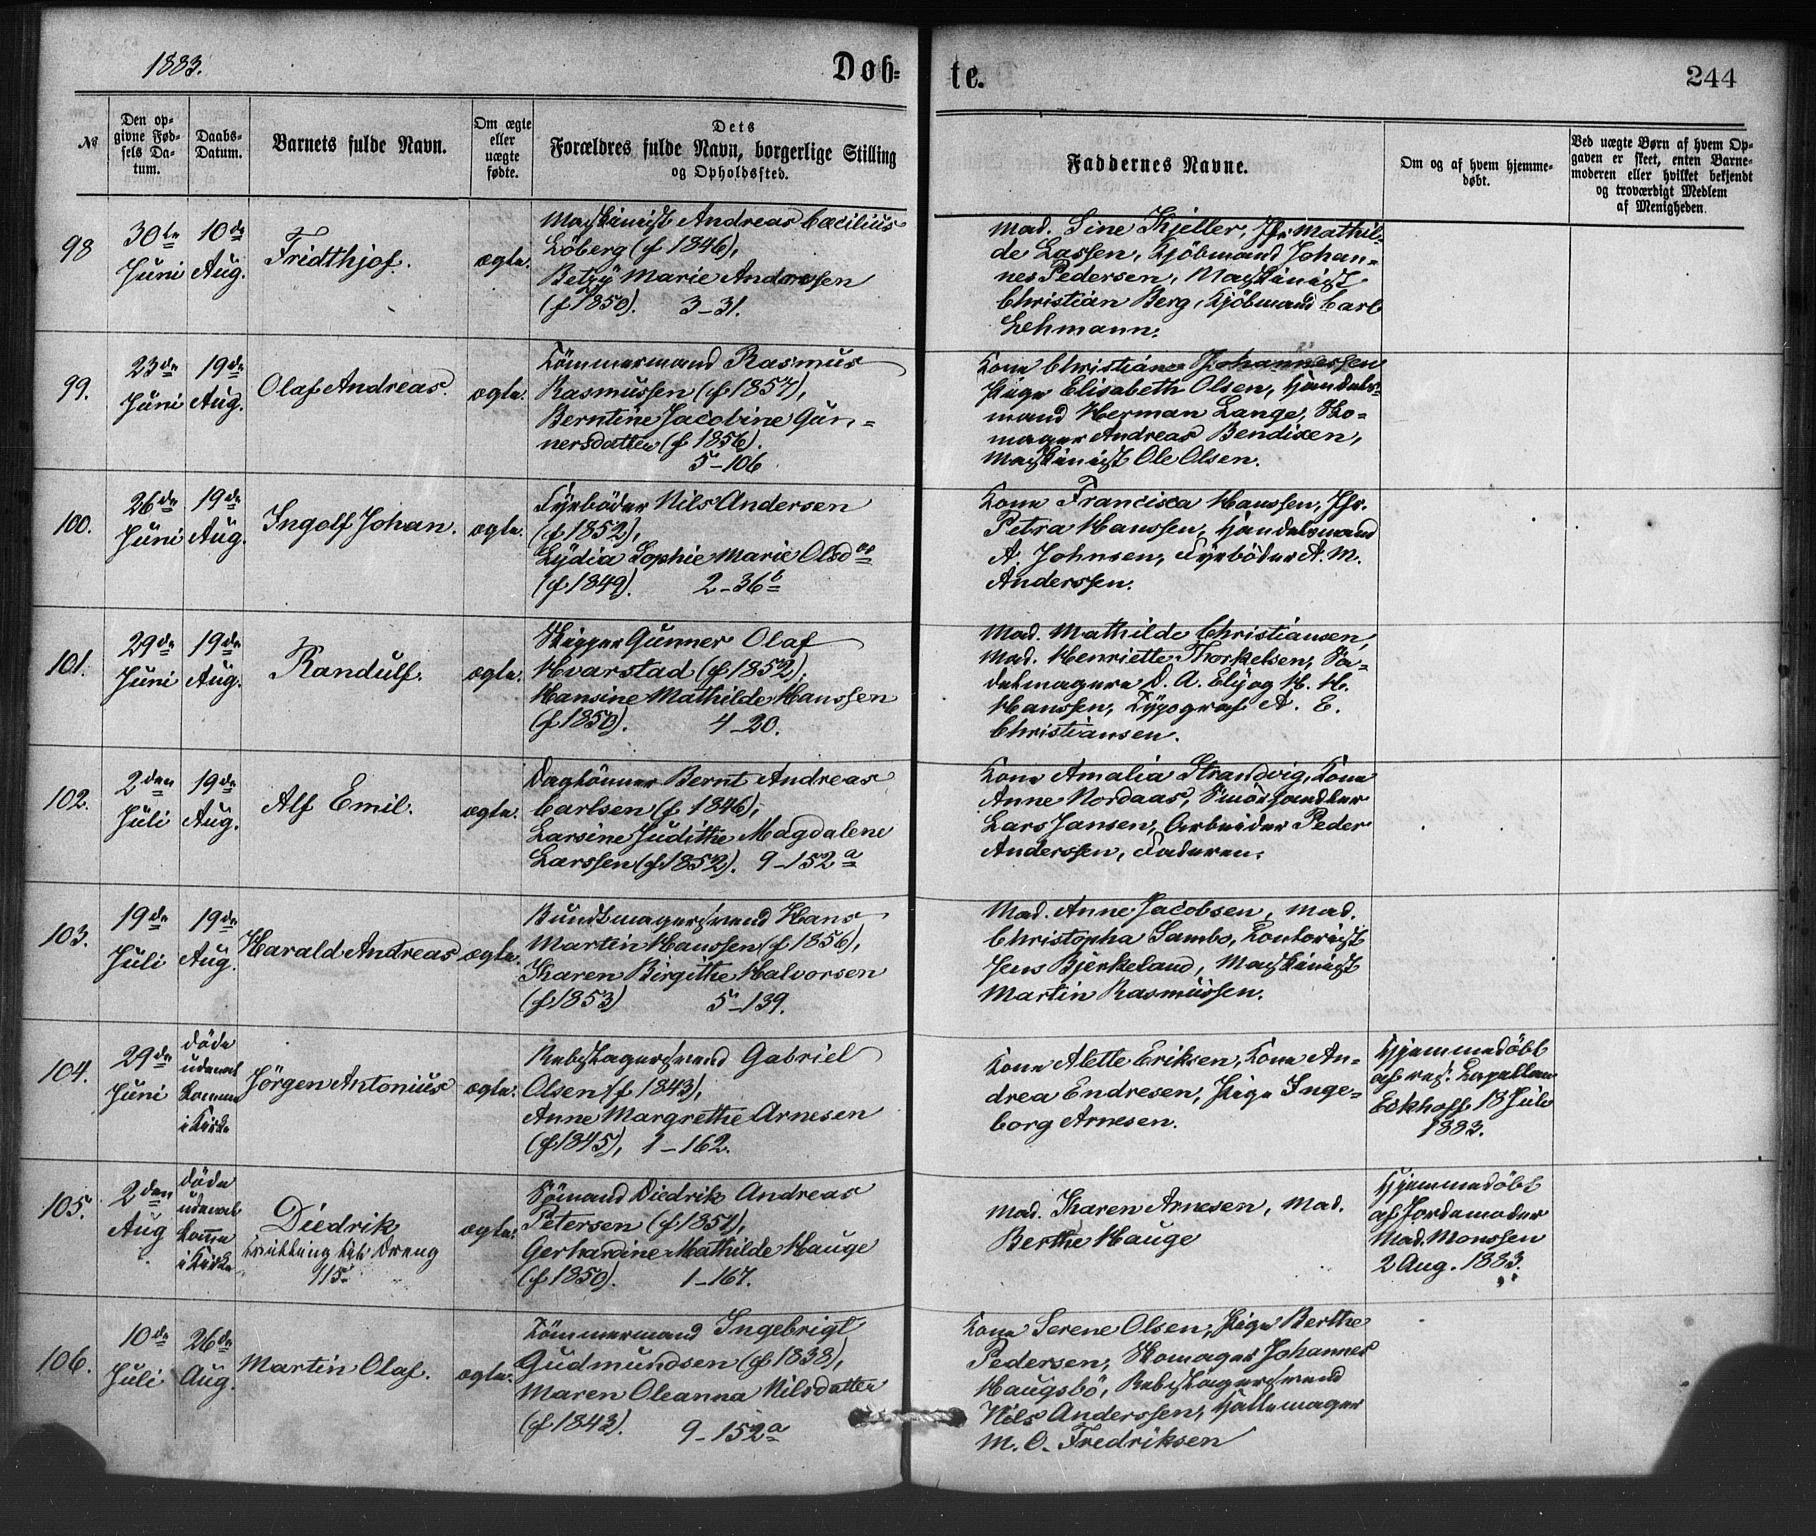 1883.
Døb-
te.
244
№
Den op-
givne Fød-
sels Da-
tum.
Daabs-
Datum.
Barnets fulde Navn.
Om ægte
eller
uægte
fødte.
Dets
Forældres fulde Navn, borgerlige Stilling
og Opholdssted.
Faddernes Navne.
Om og af hvem hjemme-
døbt.
Ved uægte Børn af hvem Op-
gaven er skeet, enten Barne-
moderen eller hvilket bekjendt
og troværdigt Medlem
af Menigheden.
98
30te
Juni
10de
Aug.
Fridthjof.
ægte.
Maskinist Andreas Cæcilius
Löberg (f 1846),
Betzy Marie Andresen
(f 1850). 3-31.
Mad. Sine Kjeller, Jfr. Mathil-
de Lassen, Kjöbmand Johan-
nes Pedersen, Maskinist
Christian Berg, Kjöbmand Carl
Lehmann.
99.
23de
Juni
19de
Aug.
Olaf Andreas.
ægte.
Tömmermand Rasmus
Rasmussen (f 1857),
Berntine Jacobine Gun-
nersdatter (f 1856).
5-106
Kone Christiane Johannessen
Pige Elisabeth Olsen, Handels-
mand Herman Lange, Sko-
mager Andreas Bendixen,
Maskinist Ole Olsen.
100.
26de
Juni
19de
Aug.
Ingolf Johan.
ægte.
Fyrböder Nils Andersen
(f 1852),
Lydia Sophie Marie Olsdr
(f 1849). 2-36b
Kone Francisca Hanssen, Jfr.
Petra Hanssen, Handelsmand
A Johnsen, Fyrböder A. M.
Anderssen.
101.
29de
Juni
19de
Aug.
Randulf.
ægte.
Skipper Gunner Olaf
Hvarstad (f 1852),
Hansine Mathilde Hanssen
(f 1850). 4-20.
Mad. Mathilde Christiansen,
Mad. Henriette Thorkelsen, Sa-
delmagere D. A. Ely og H. H.
Hanssen, Typograf A. E.
Christiansen.
102.
2den
Juli
19de
Aug.
Alf Emil.
ægte.
Daglönner Bernt Andreas
Carlsen (f. 1846),
Larsine Judithe Magdalene
Larssen (f 1852). 9-152a
Kone Amalia Strandvig, Kone
Anne Nordaas, Smörhandler
Lars Jansen, Arbeider Peder
Anderssen, Faderen.
103.
19de
Juli
19de
Aug.
Harald Andreas
ægte.
Bundtmagersvend Hans
Martin Hanssen (f 1856),
Karen Birgithe Halvorsen
(f 1853) 5-139.
Mad. Anne Jacobsen, Mad.
Christopha Sambo, Kontorist
Jens Bjerkeland, Maskinist
Martin Rasmussen.
104.
29de
Juni
döde
udenat
komme
i Kirke
Jörgen Antonius
ægte.
Rebslagersvend Gabriel
Olsen (f 1843),
Anne Margrethe Arnesen
(f 1845), 1-162.
Kone Alette Eriksen, Kone An-
drea Endresen, Pige Inge-
borg Arnesen.
Hjemmedöbt
af res. Capellan
Eckhoff 13 Juli
1883.
105.
2den
Aug
döde
udenat
komme
i Kirke
Diedrik
Tvilling till Dreng
115.
ægte.
Sömand Diedrik Andreas
Petersen (f 1857),
Gerhardine Mathilde Hauge
(f 1850). 1-167.
Mad. Karen Arnesen, Mad.
Berthe Hauge
Hjemmedöbt
af Jordemoder
Mad. Monssen
2 Aug. 1883.
106.
10de
Juli
26de
Aug.
Martin Olaf.
ægte.
Tömmermand Ingebrigt
Gudmundsen (f 1838),
Maren Oleanna Nilsdatter
(f 1843). 9-152a
Kone Serene Olsen, Pige Berthe
Pedersen, Skomager Johannes
Haugsbö, Rebslagersvend
Nils Anderssen,
M. O. Fredriksen